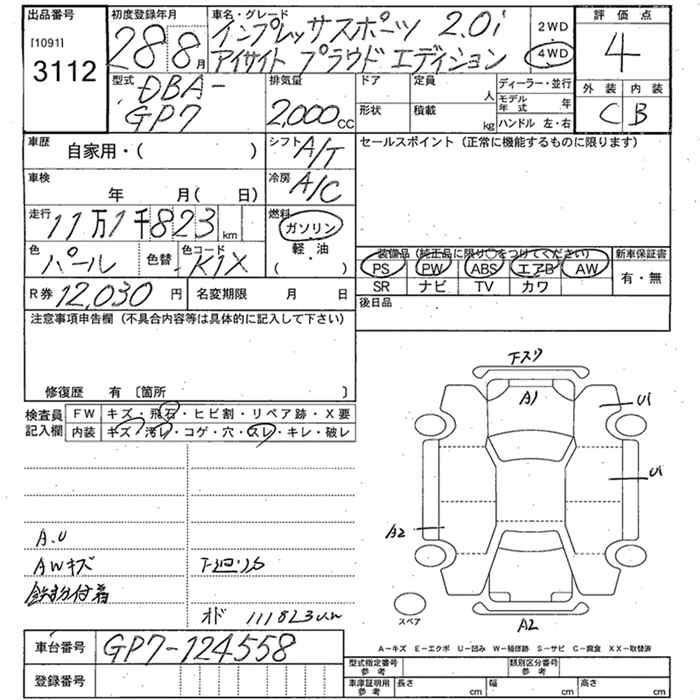 出品番号 初度登録年月 車名・グレード 評価点
[1091] 3112 28 8月 インプレッサスポーツ 2.0i 2WD 4
アイサイト プラウド エディション 4WD
型式 DBA-GP7 排気量 2,000cc ドア 定員 人 ディーラー・並行 外装 内装
形状 積載 kg モデル年式 年 C B
ハンドル 左・右
車歴 自家用・( ) シフト A/T セールスポイント(正常に機能するものに限ります)
車検 年 月( 日) 冷房 A/C
走行 11万1千823km 燃料 ガソリン
軽・油
( )
色 パール 色替 色コード K1X
装備品(純正品に限り○をつけてください) 新車保証書
PS PW ABS エアB AW 有・無
SR ナビ TV カワ
R券 12,030円 名変期限 月 日 後日品
注意事項申告欄(不具合内容等は具体的に記入して下さい)
修復歴 有〔箇所 〕
検査員記入欄 FW キズ・飛石・ヒビ割・リペア跡・X要
内装 キズ・汚レ・コゲ・穴・スレ・キレ・破レ
下スリ
A1
U1
U1
A2
A.U
AWキズ 下廻サビ
鉄粉付着
オド 111823km
スペア
A2
車台番号 GP7-124558
A-キズ E-エクボ U-凹み W-補修跡 S-サビ C-腐食 XX-取替済
登録番号
型式指定番号 参考 類別区分番号 参考
車庫証明用 参考 長さ cm 幅 cm 高さ cm